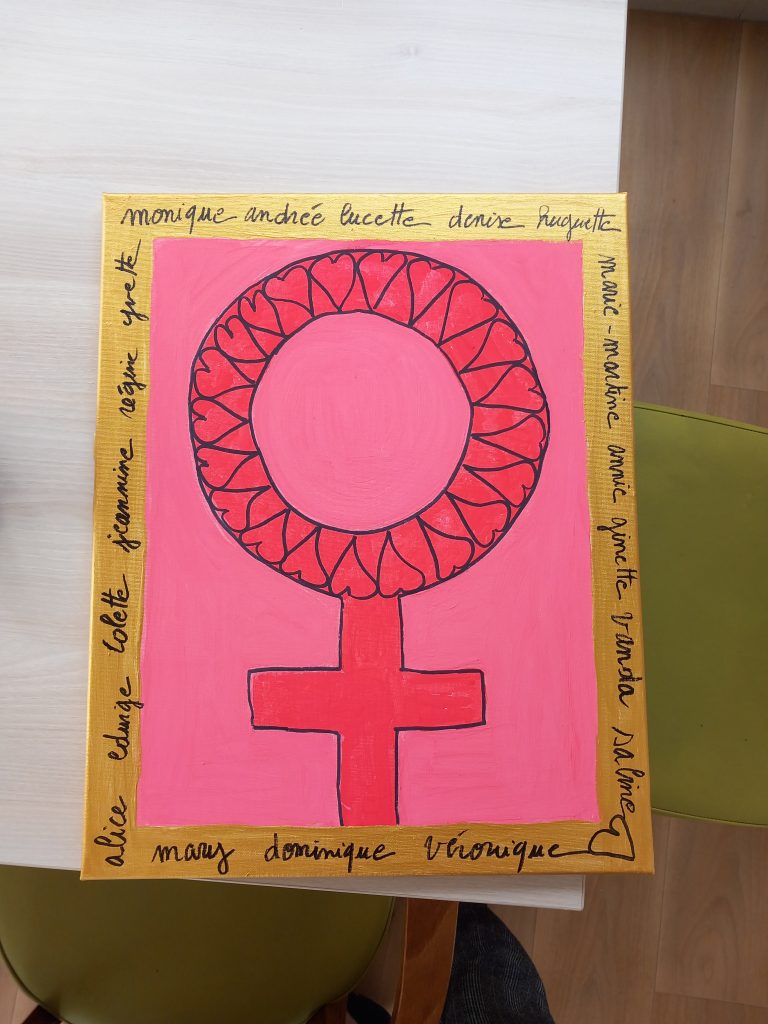 monique andrée lucette denise huguette
marie-martine annie ginette vanda saline
mary dominique véronique
alice edwige colette jeannine régine yvette